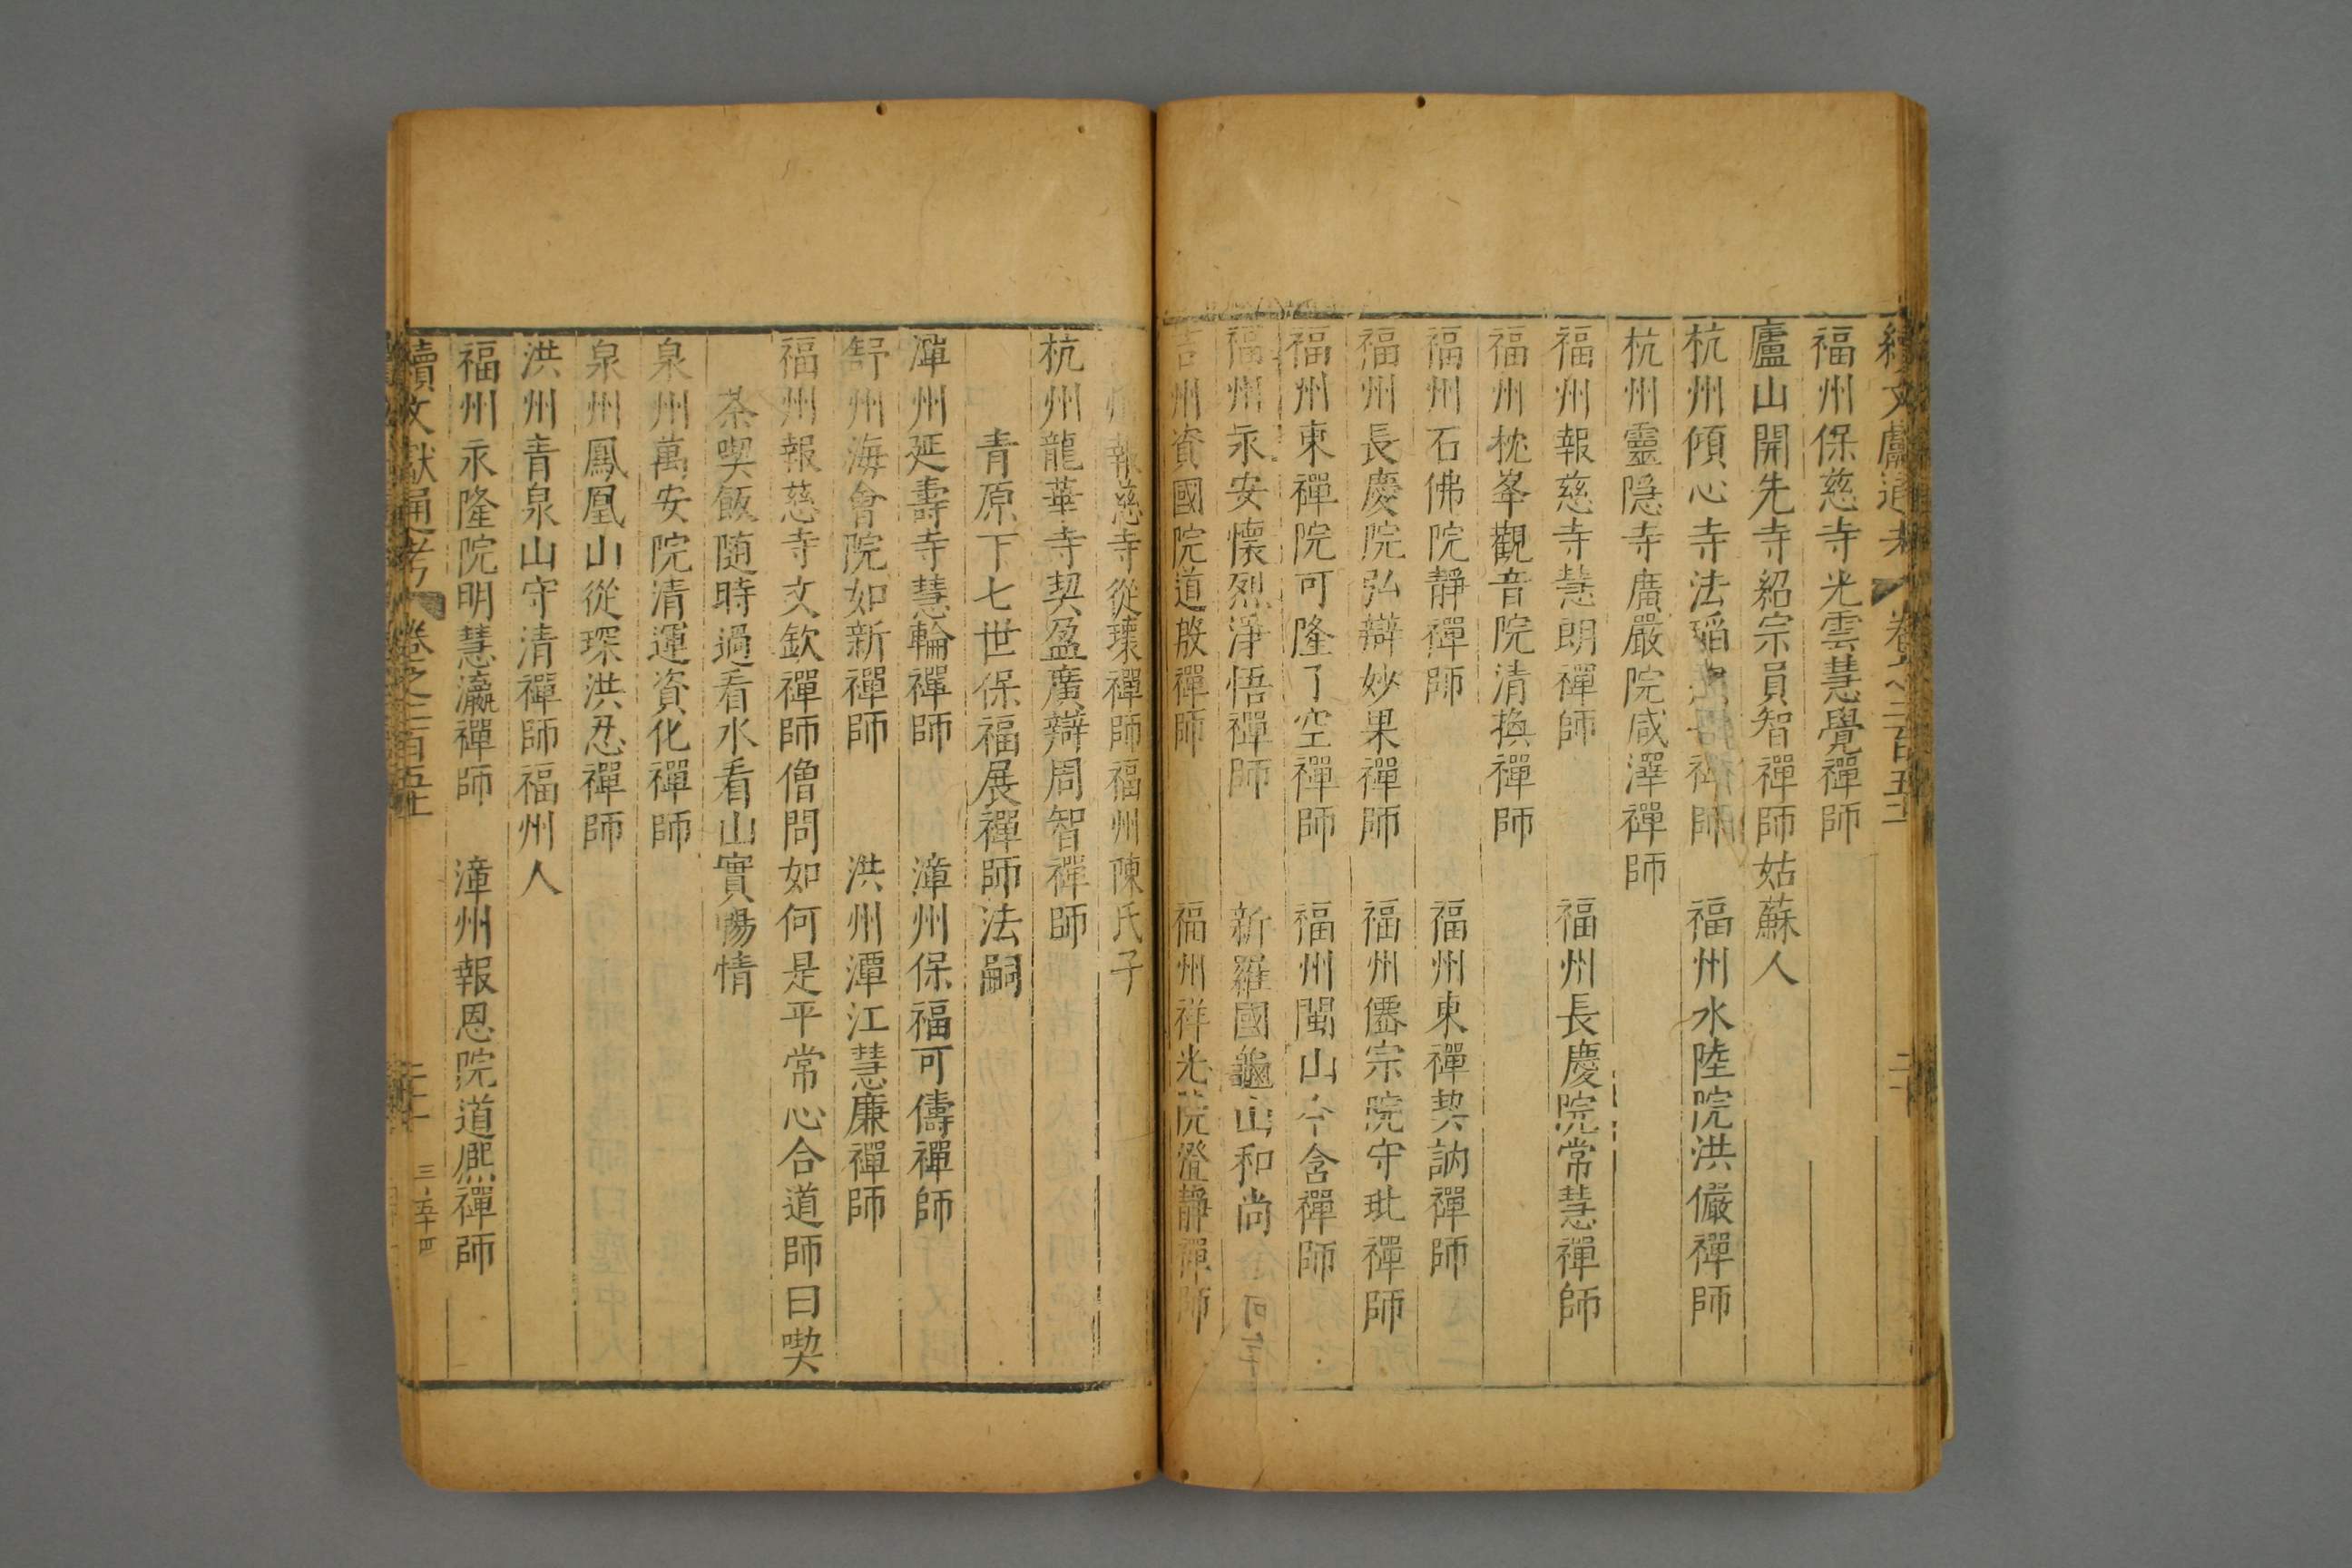 續文獻通考 卷之二百五十
福州保慈寺光雲慧覺禪師
廬山開先寺紹宗員智禪師姑蘇人
杭州傾心寺法瑫 禪師 福州水陸院洪儼禪師
杭州靈隱寺廣嚴院咸澤禪師
福州報慈寺慧朗禪師 福州長慶院常慧禪師
福州枕峯觀音院清換禪師
福州石佛院靜禪師 福州東禪契訥禪師
福州長慶院弘辯妙果禪師 福州僊宗院守玭禪師
福州東禪院可隆了空禪師 福州閩山令含禪師
福州永安懷烈淨悟禪師 新羅國龜山和尚
吉州資國院道殷禪師 福州祥光院澄靜禪師
州報慈寺從瓌禪師福州陳氏子
杭州龍華寺契盈廣辯周智禪師
青原下七世保福展禪師法嗣
潭州延壽寺慧輪禪師 漳州保福可儔禪師
舒州海會院如新禪師 洪州潭江慧廉禪師
福州報慈寺文欽禪師僧問如何是平常心合道師曰喫
茶喫飯隨時過看水看山實暢情
泉州萬安院清運資化禪師
泉州鳳凰山從琛洪忍禪師
洪州青泉山守清禪師福州人
福州永隆院明慧瀛禪師 漳州報恩院道熈禪師
續文獻通考 卷之二百五十 三五十四